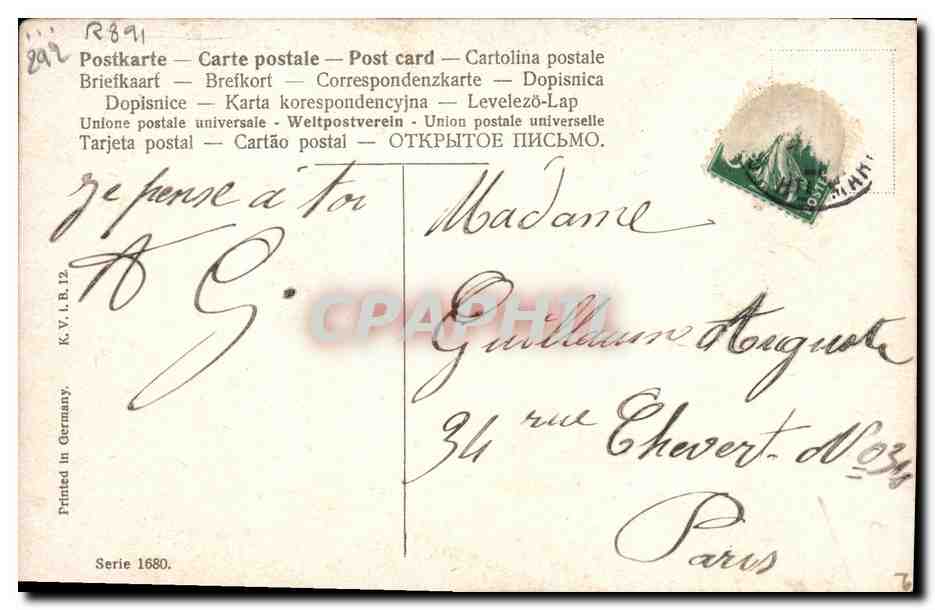 R891
892
Postkarte — Carte postale — Post card — Cartolina postale
Briefkaart — Brefkort — Correspondenzkarte — Dopisnica
Dopisnice — Karta korespondencyjna — Levelezö-Lap
Unione postale universale - Weltpostverein - Union postale universelle
Tarjeta postal — Cartão postal — ОТКРЫТОЕ ПИСЬМО.
je pense à toi
A G.
Madame
Guillaume Auguste
34 rue Chevert. No 34
Paris
K. V. i. B. 12.
Printed in Germany.
Serie 1680.
CPAPHIL